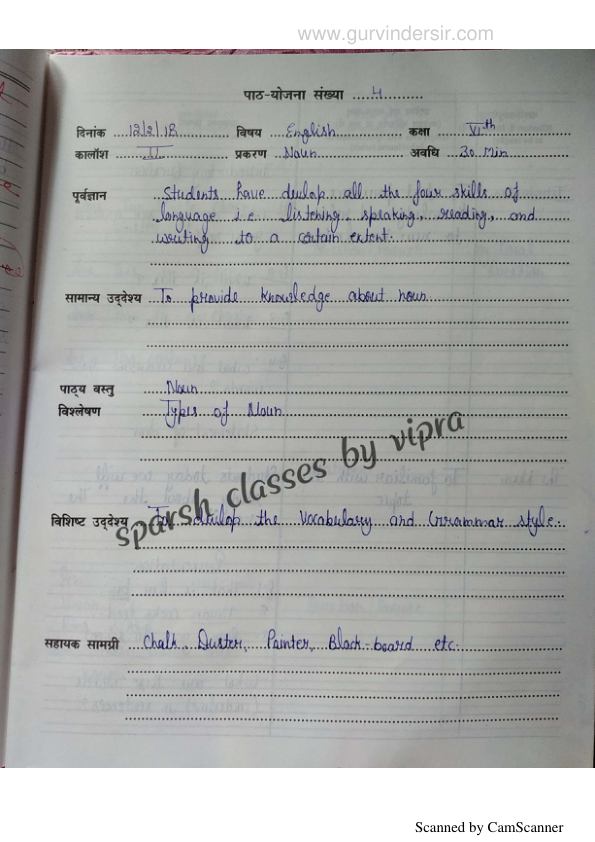 www.gurvindersir.com
पाठ-योजना संख्या ....4..........
दिनांक ....12/2/18.............. विषय ....English.............. कक्षा .........VIth...............
कालाँश .........II............... प्रकरण ...Noun.................. अवधि ....30 Min..............
पूर्वज्ञान Students have devlop all the four skills of
language i.e. listening, speaking, reading, and
writing to a certain extent.
सामान्य उद्देश्य To provide knowledge about noun.
पाठ्य वस्तु Noun
विश्लेषण Types of Noun
sparsh classes by vipra
विशिष्ट उद्देश्य To devlop the vocabulary and Grammar style.
सहायक सामग्री Chalk, Duster, Painter, Black-board etc.
Scanned by CamScanner